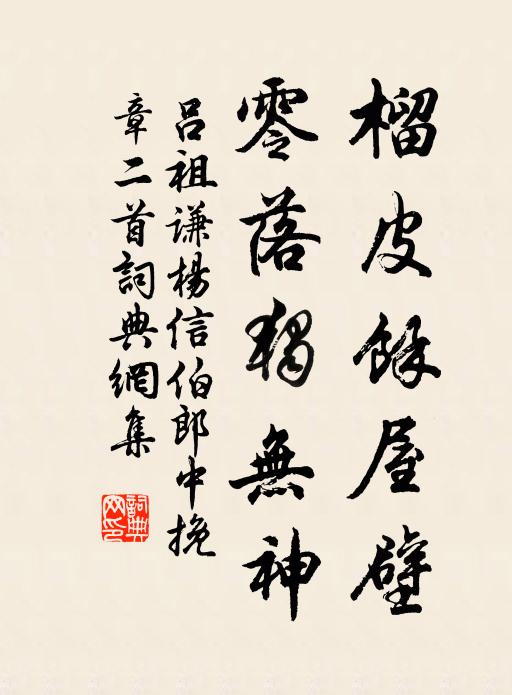 榴皮餘屋壁
零落獨無神
呂祖謙楊信伯郎中挽
章二首詞典網集
詞典
网印